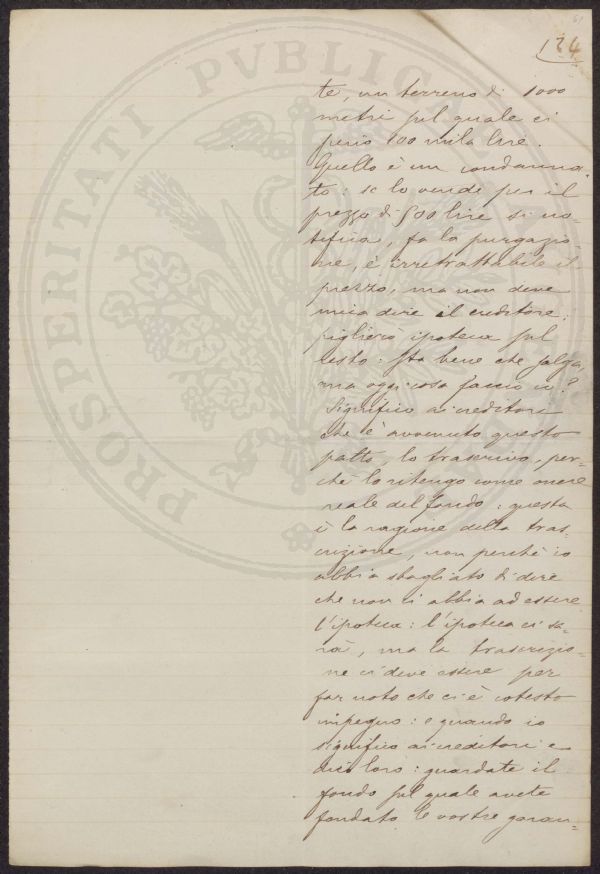 61
124
PROSPERITATI PVBLICAE
te, un terreno di 1000
metri sul quale ci
sono 100 mila lire.
Quello è un condanna-
to: se lo vende per il
prezzo di 500 lire si no-
tifica, fa la purgazio-
ne, è irritrattabile il
prezzo, ma non deve
mica dire il creditore:
piglierò ipoteca sul
resto: Sta bene che salga,
ma ogni cosa faccio io?
Significo ai creditori
che è avvenuto questo
patto, lo trascrivo, per-
chè lo ritengo come onere
reale del fondo: questa
è la ragione della tras-
crizione, non perchè io
abbia sbagliato di dire
che non ci abbia ad essere
l'ipoteca: l'ipoteca ci sa-
rà, ma la trascrizio-
ne ci deve essere per
far noto che ci è cotesto
impegno: e quando io
significo ai creditori e
dico loro: guardate il
fondo sul quale avete
fondato le vostre garan-